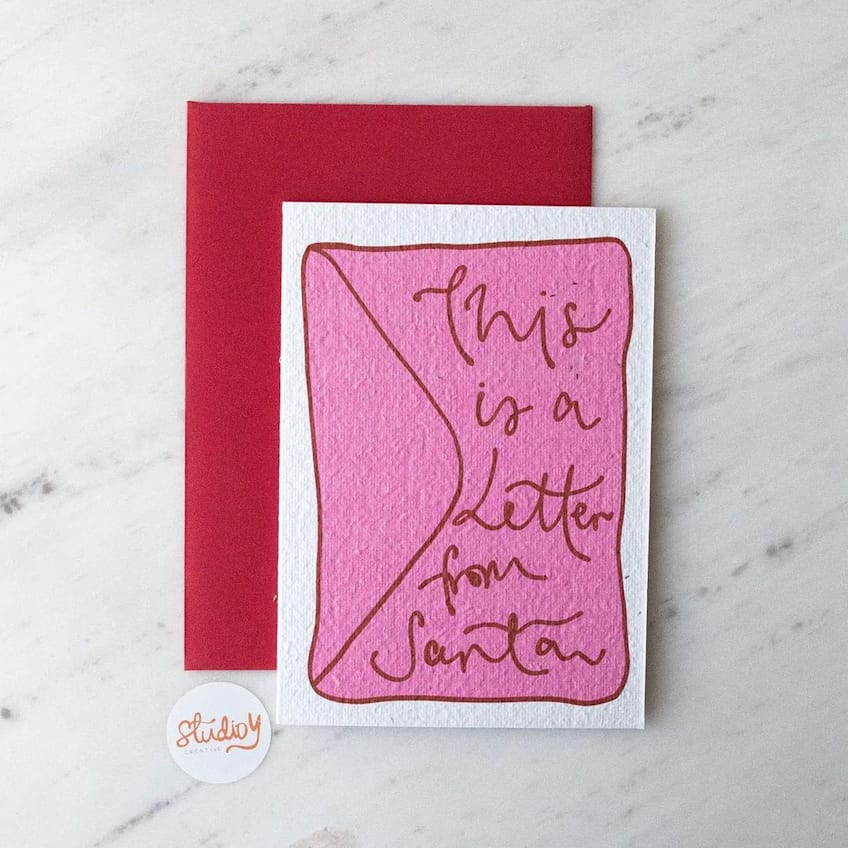 This
is a
Letter
from
Santa
studio y
CREATIVE